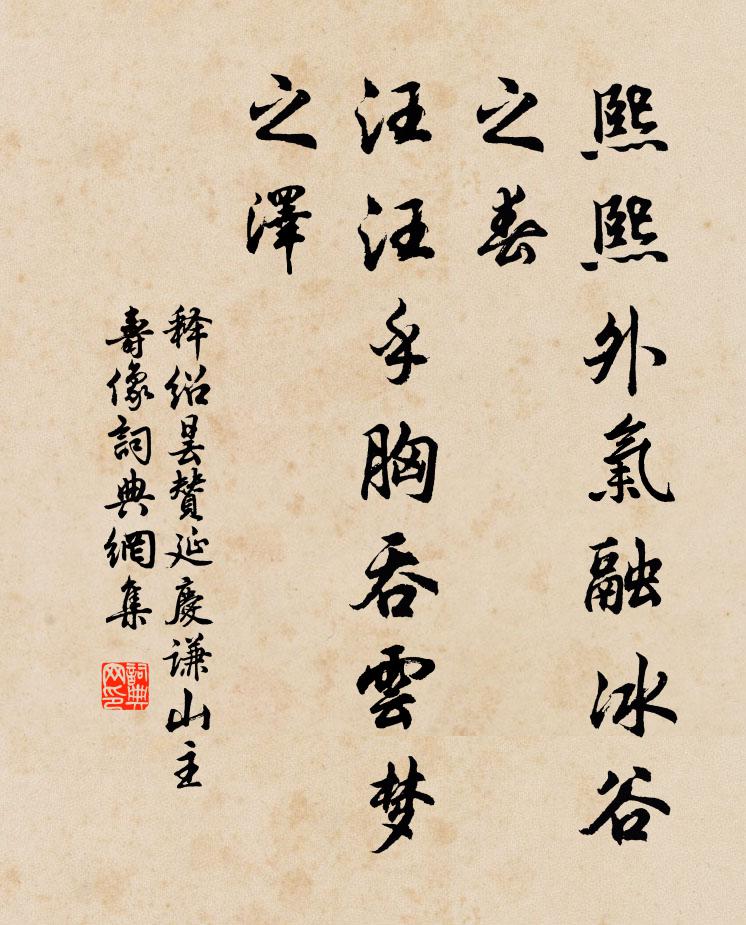 熙熙外氣融冰谷
之春
汪汪乎胸吞雲梦
之澤
释绍昙贊延慶谦山主
壽像詞典網集
詞典网印